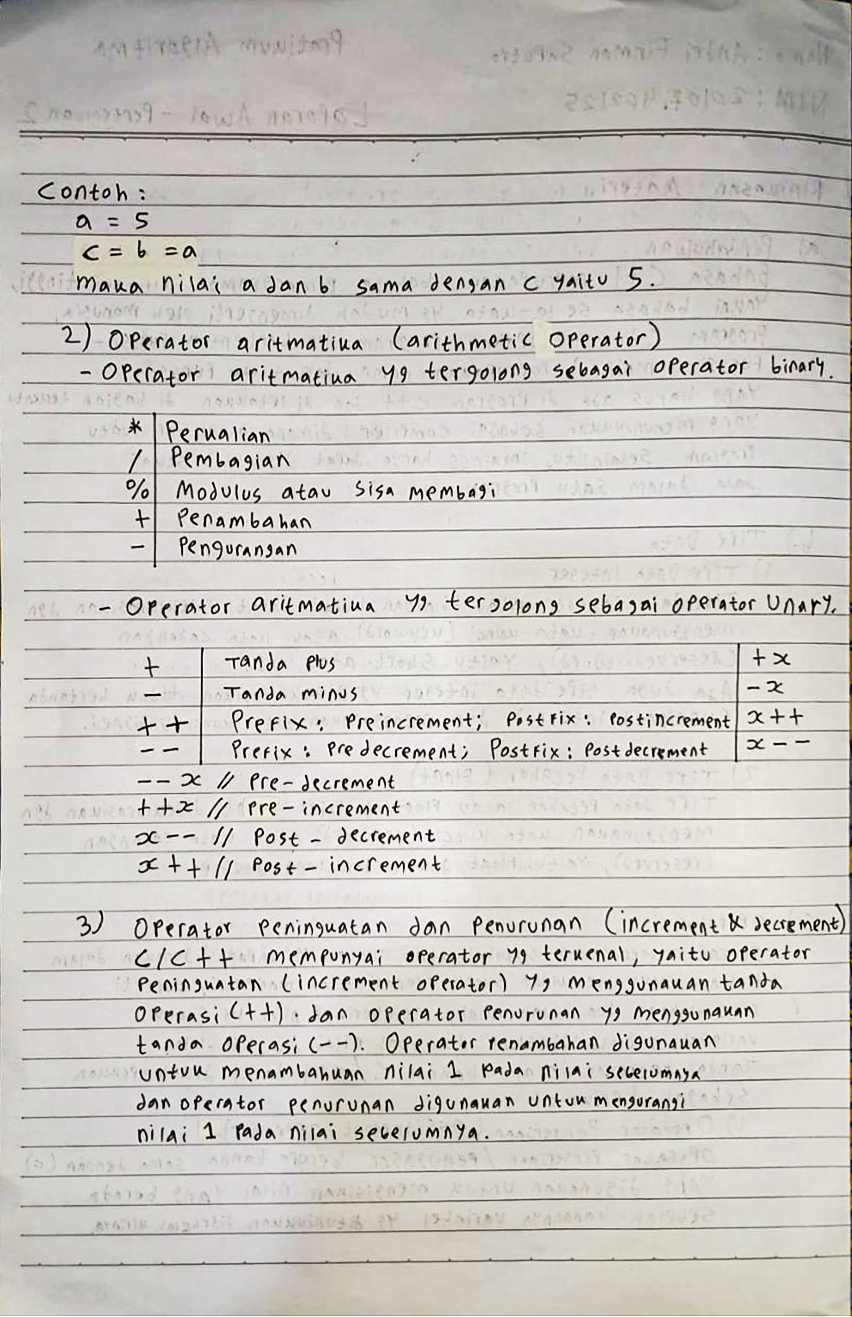 Contoh :
a = 5
c = b = a
maka nilai a dan b sama dengan c yaitu 5.
2) Operator aritmatika (arithmetic operator)
- Operator aritmatika yg tergolong sebagai operator binary.
* Perkalian
/ Pembagian
% Modulus atau sisa membagi
+ Penambahan
- Pengurangan
- Operator aritmatika yg tergolong sebagai operator Unary.
+ Tanda plus +x
- Tanda minus -x
++ Prefix : Preincrement; Postfix : Postincrement x++
-- Prefix : Predecrement; Postfix : Postdecrement x--
--x // Pre-decrement
++x // Pre-increment
x-- // Post-decrement
x++ // Post-increment
3) Operator Peningkatan dan Penurunan (increment & decrement)
C/C++ mempunyai operator yg terkenal, yaitu operator
Peningkatan (increment operator) yg menggunakan tanda
Operasi (++). dan operator penurunan yg menggunakan
tanda operasi (--). Operator penambahan digunakan
untuk menambahkan nilai 1 pada nilai sebelumnya
dan operator penurunan digunakan untuk mengurangi
nilai 1 pada nilai sebelumnya.